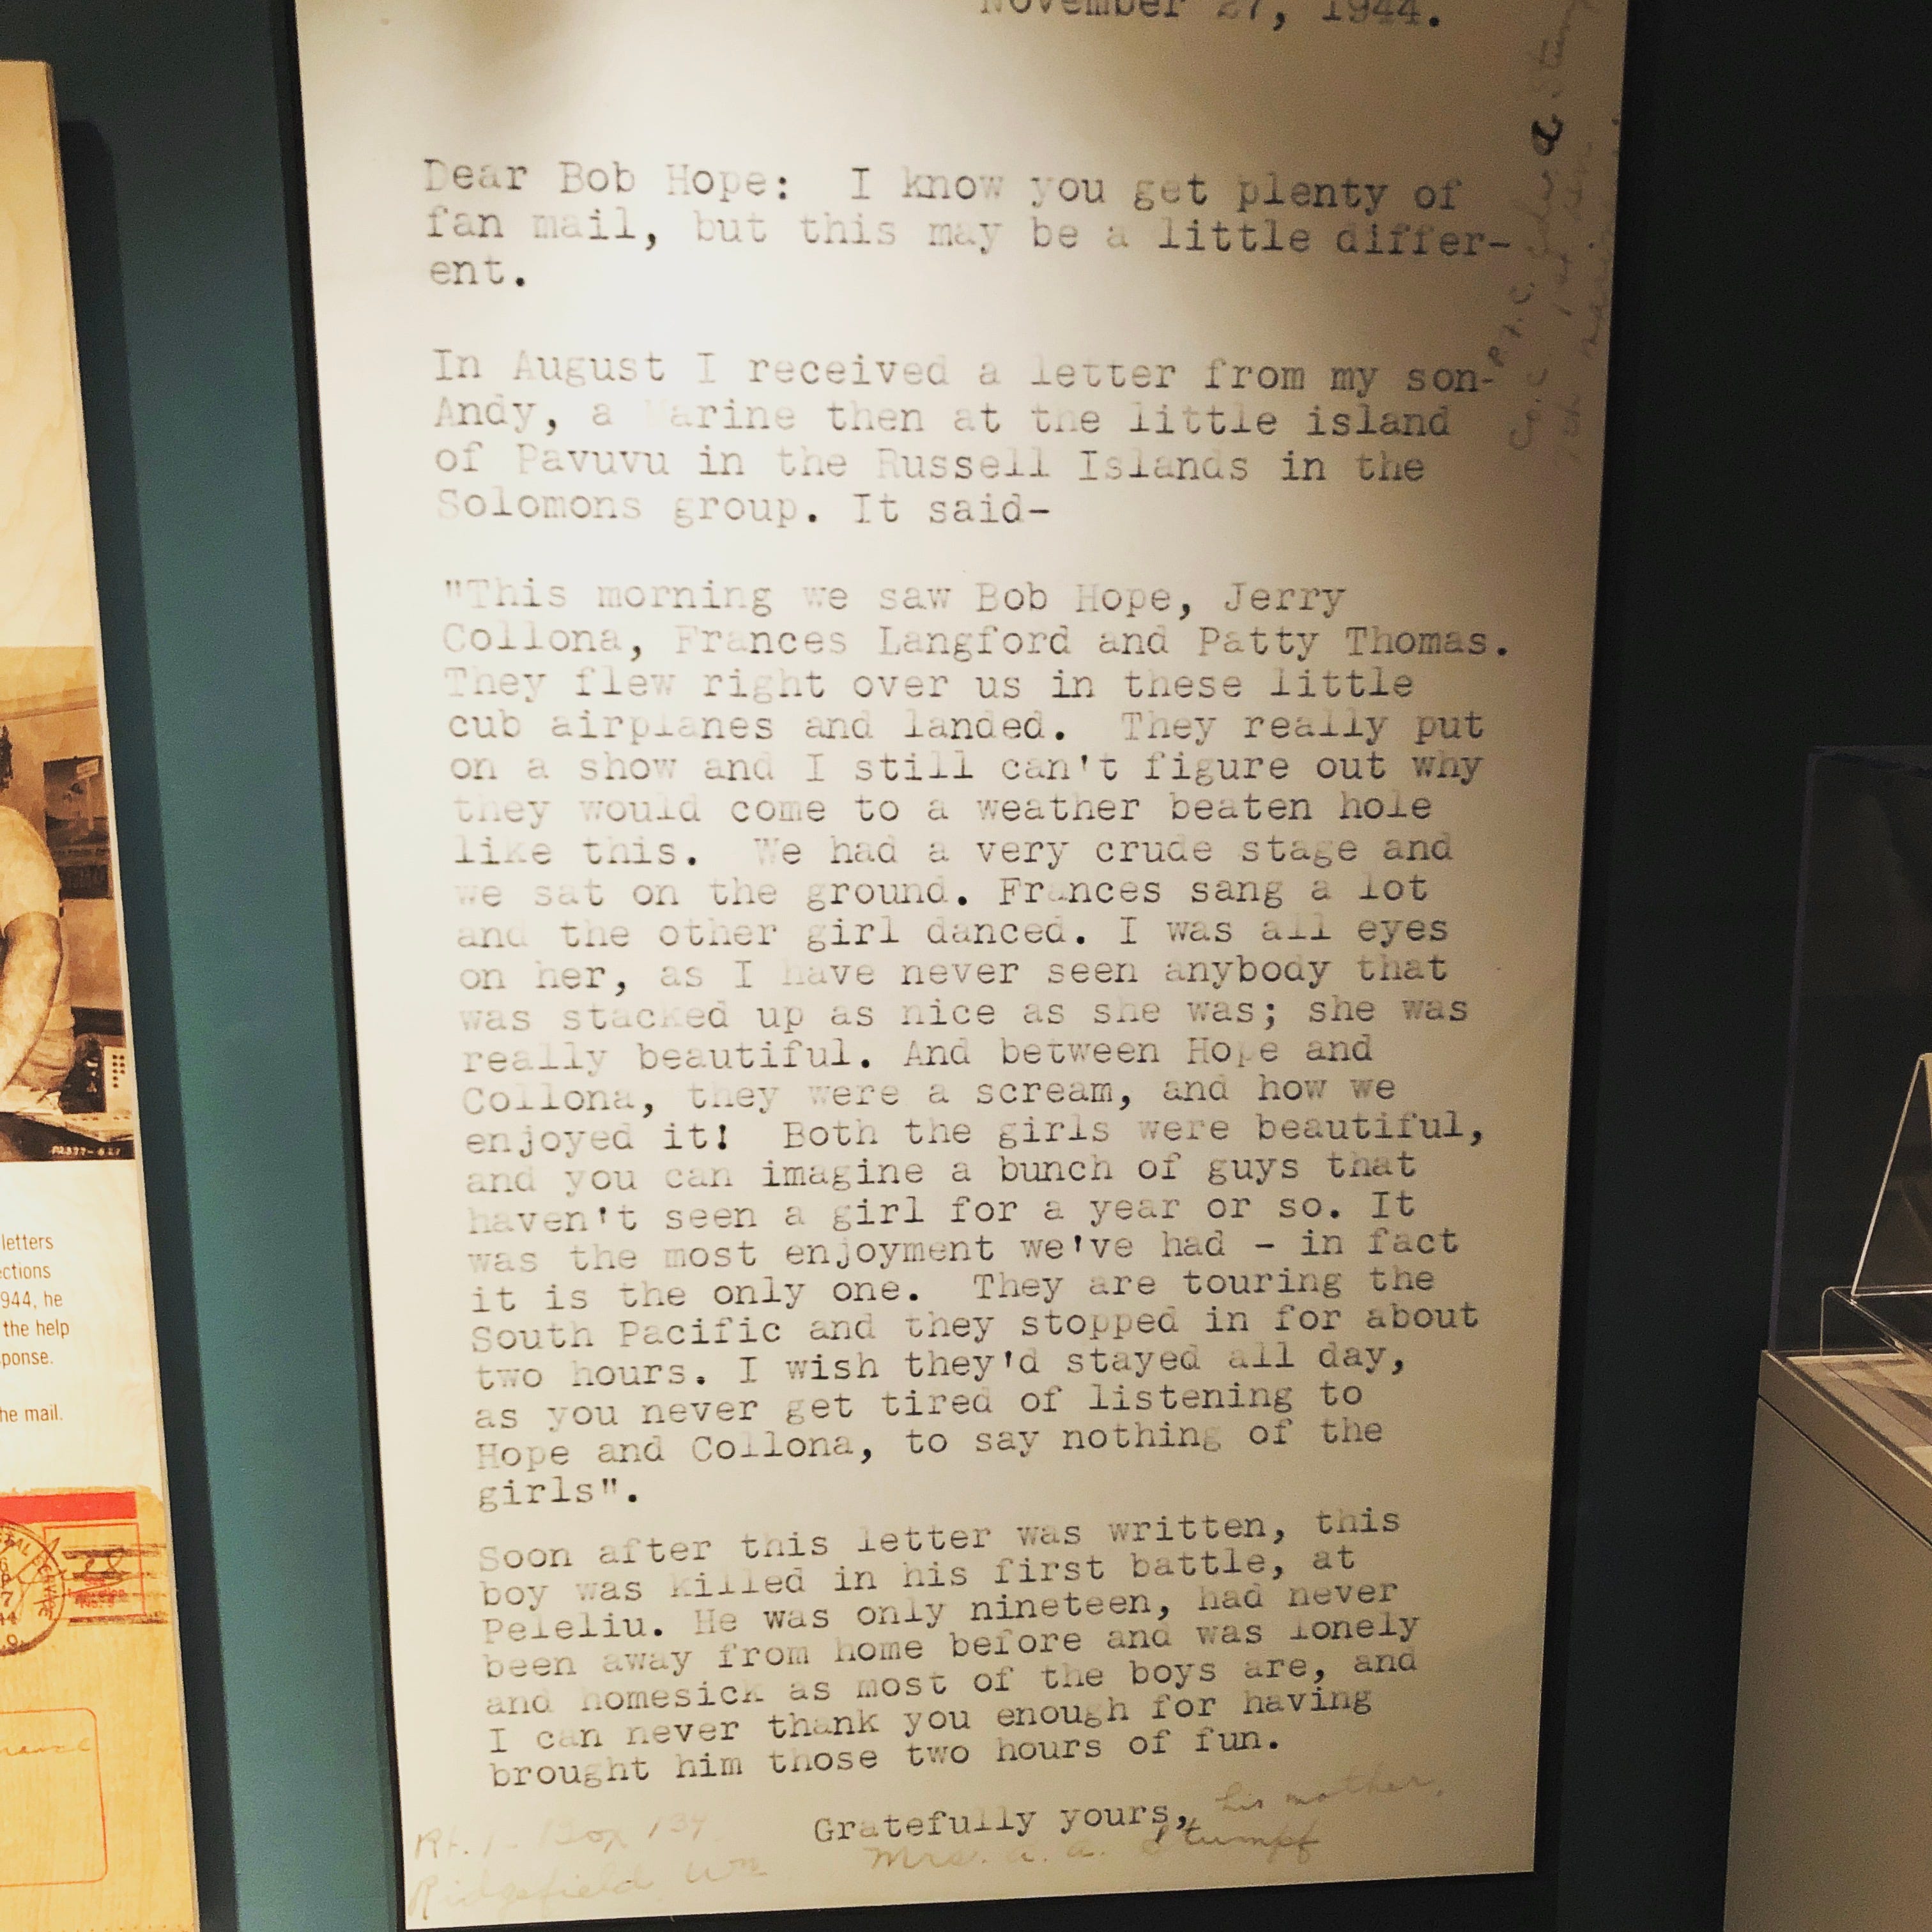 November 27, 1944.
Dear Bob Hope: I know you get plenty of
fan mail, but this may be a little differ-
ent.
In August I received a letter from my son-
Andy, a Marine then at the little island
of Pavuvu in the Russell Islands in the
Solomons group. It said-
"This morning we saw Bob Hope, Jerry
Collona, Frances Langford and Patty Thomas.
They flew right over us in these little
cub airplanes and landed. They really put
on a show and I still can't figure out why
they would come to a weather beaten hole
like this. We had a very crude stage and
we sat on the ground. Frances sang a lot
and the other girl danced. I was all eyes
on her, as I have never seen anybody that
was stacked up as nice as she was; she was
really beautiful. And between Hope and
Collona, they were a scream, and how we
enjoyed it! Both the girls were beautiful,
and you can imagine a bunch of guys that
haven't seen a girl for a year or so. It
was the most enjoyment we've had - in fact
it is the only one. They are touring the
South Pacific and they stopped in for about
two hours. I wish they'd stayed all day,
as you never get tired of listening to
Hope and Collona, to say nothing of the
girls".
Soon after this letter was written, this
boy was killed in his first battle, at
Peleliu. He was only nineteen, had never
been away from home before and was lonely
and homesick as most of the boys are, and
I can never thank you enough for having
brought him those two hours of fun.
Gratefully yours, his mother,
Mrs. A. A. Stumpf
Rt. 1 - Box 134
Ridgefield Wn
P.F.C.
Co. C
letters
ections
944, he
the help
ponse.
he mail.